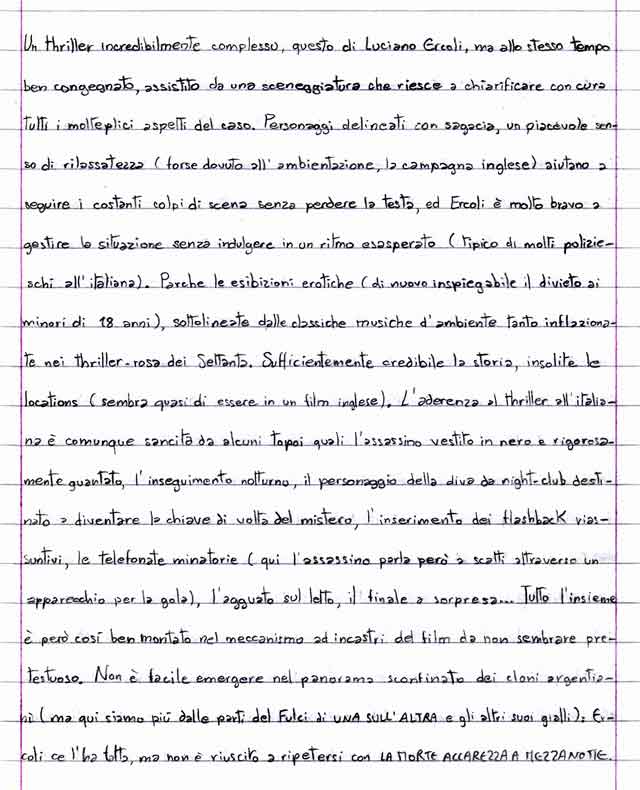 Un thriller incredibilmente complesso, questo di Luciano Ercoli, ma allo stesso tempo
ben congegnato, assistito da una sceneggiatura che riesce a chiarificare con cura
tutti i molteplici aspetti del caso. Personaggi delineati con sagacia, un piacevole sen-
so di rilassatezza (forse dovuto all'ambientazione, la campagna inglese) aiutano a
seguire i costanti colpi di scena senza perdere la testa, ed Ercoli è molto bravo a
gestire la situazione senza indulgere in un ritmo esasperato (tipico di molti polizie-
schi all'italiana). Parche le esibizioni erotiche (di nuovo inspiegabile il divieto ai
minori di 18 anni), sottolineate dalle classiche musiche d'ambiente tanto inflaziona-
te nei thriller-rosa dei Settanta. Sufficientemente credibile la storia, insolite le
locations (sembra quasi di essere in un film inglese). L'aderenza al thriller all'italia-
na è comunque sancita da alcuni topoi quali l'assassino vestito in nero e rigorosa-
mente guantato, l'inseguimento notturno, il personaggio della diva da night-club desti-
nato a diventare la chiave di volta del mistero, l'inserimento dei flashback rias-
suntivi, le telefonate minatorie (qui l'assassino parla però a scatti attraverso un
apparecchio per la gola), l'agguato sul letto, il finale a sorpresa... Tutto l'insieme
è però così ben montato nel meccanismo ad incastri del film da non sembrare pre-
testuoso. Non è facile emergere nel panorama sconfinato dei cloni argentia-
ni (ma qui siamo più dalle parti del Fulci di UNA SULL'ALTRA e gli altri suoi gialli): Er-
coli ce l'ha fatta, ma non è riuscito a ripetersi con LA MORTE ACCAREZZA A MEZZANOTTE.